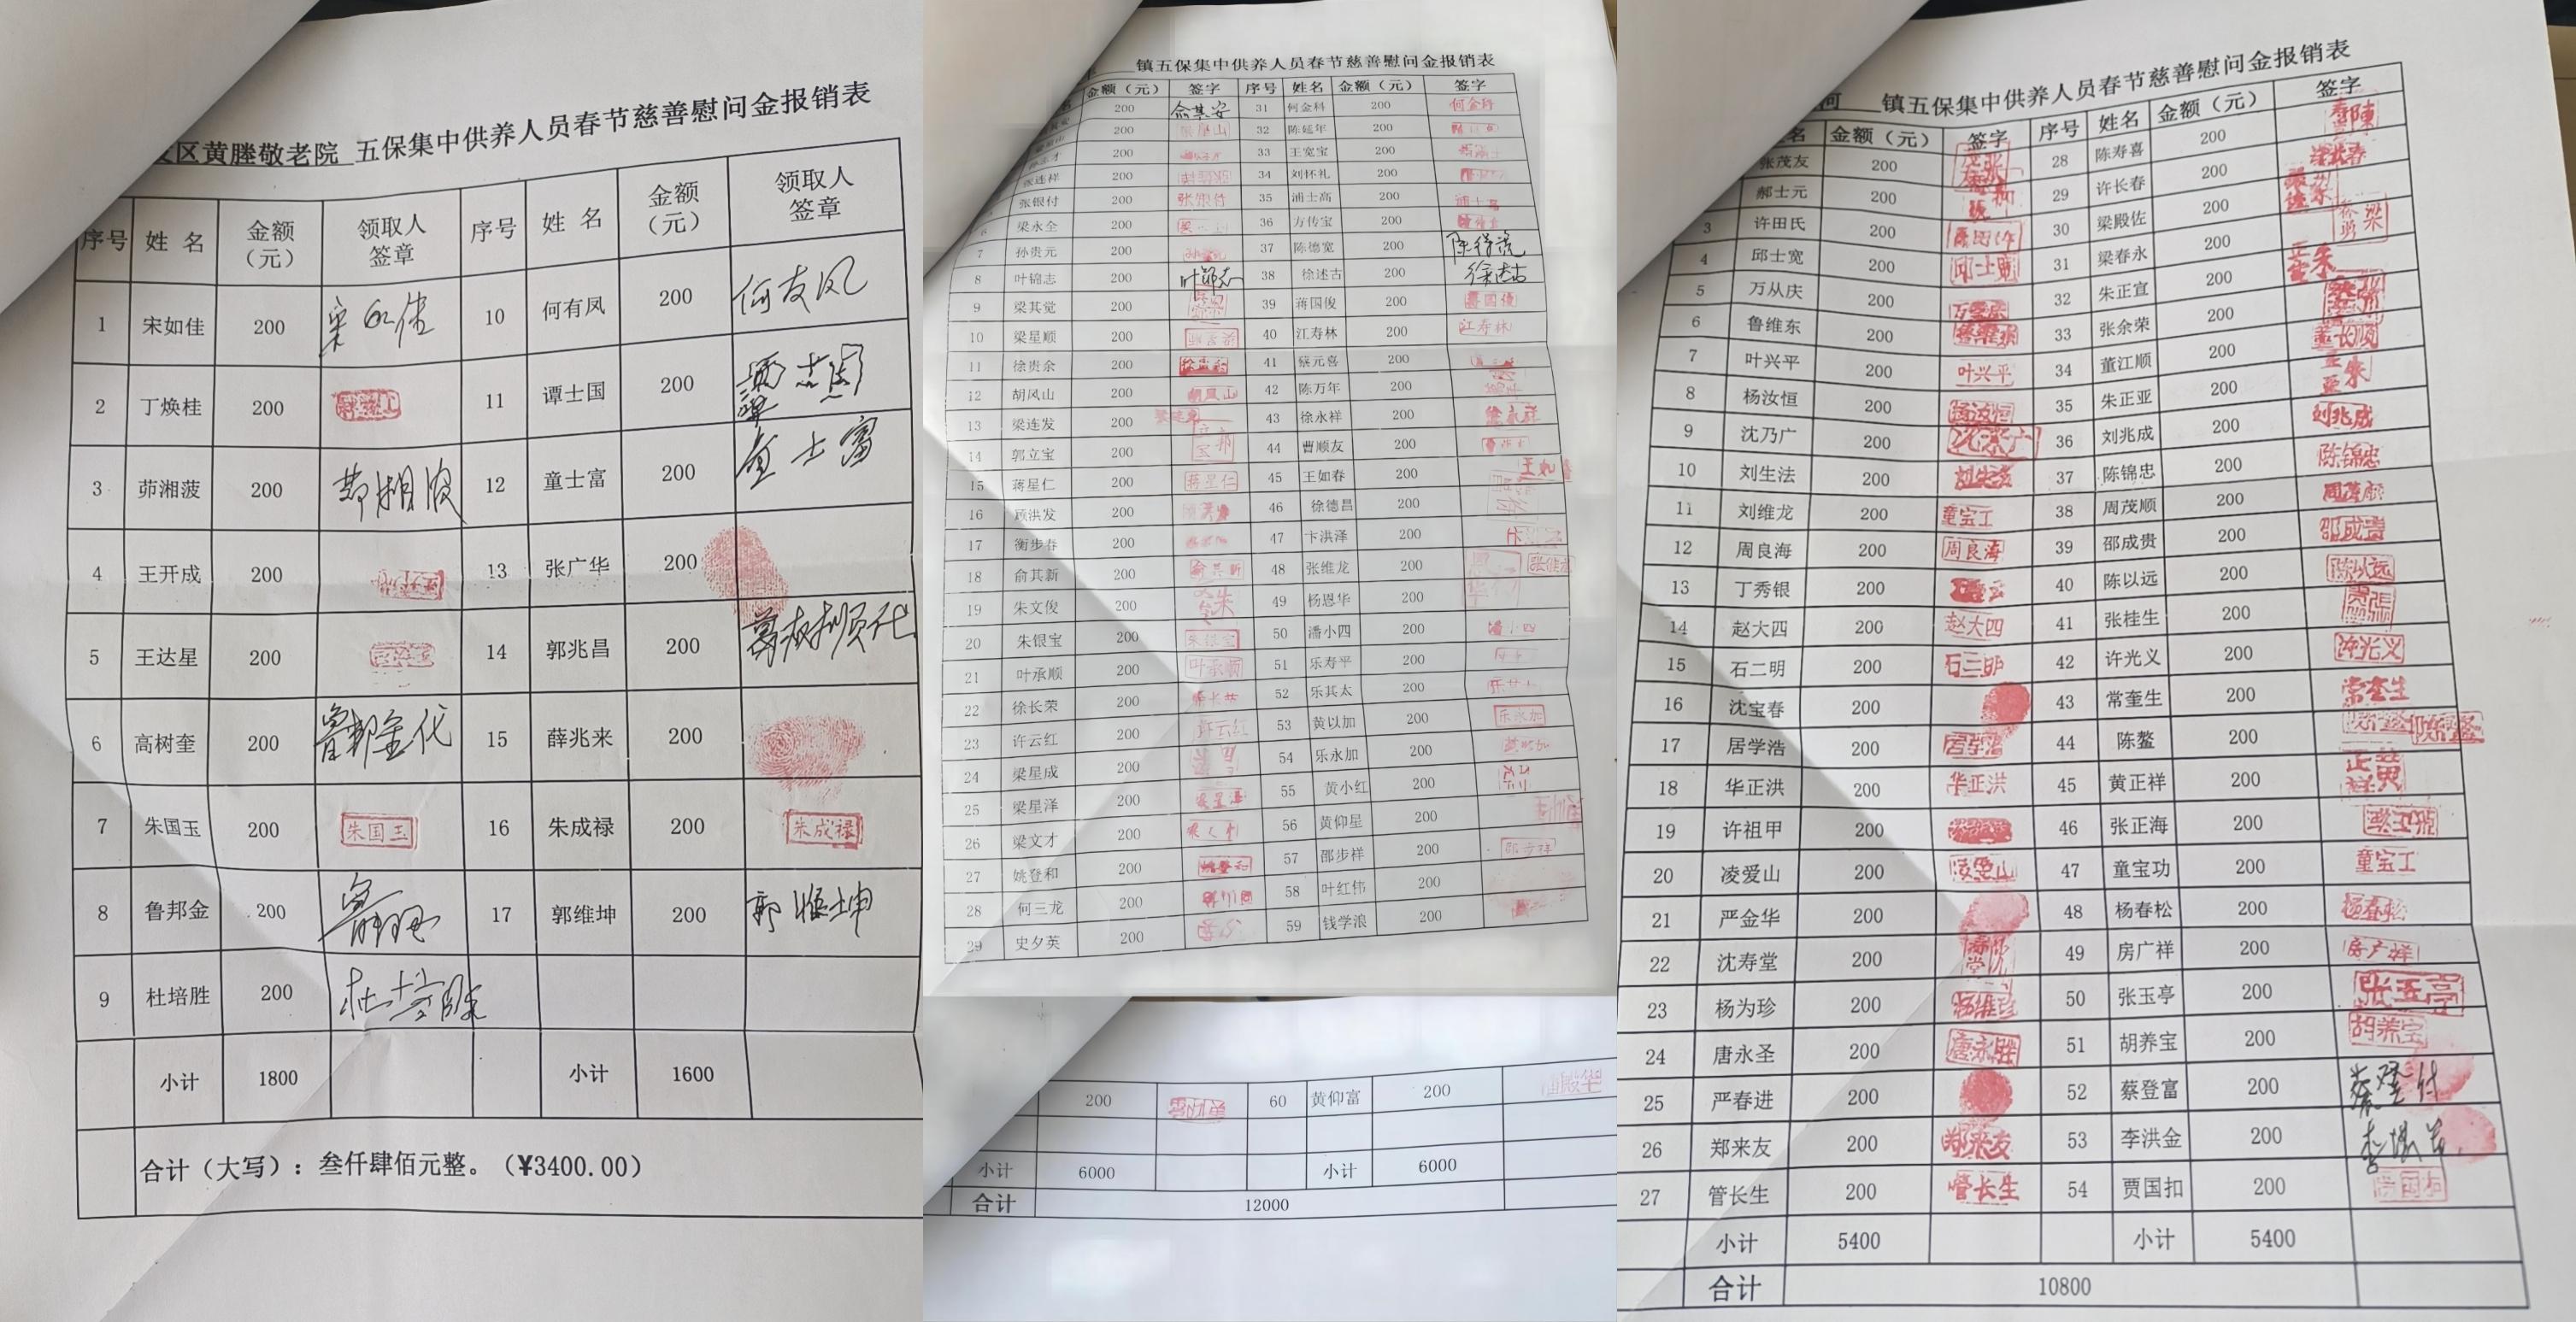 区黄塍敬老院 五保集中供养人员春节慈善慰问金报销表
序号 姓 名 金额（元） 领取人签章 序号 姓 名 金额（元） 领取人签章
1 宋如佳 200 宋如佳 10 何有凤 200 何友凤
2 丁焕桂 200 11 谭士国 200
3 茆湘菠 200 茆湘波 12 童士富 200 童士富
4 王开成 200 13 张广华 200
5 王达星 200 14 郭兆昌 200
6 高树奎 200 鲁邦金代 15 薛兆来 200
7 朱国玉 200 朱国玉 16 朱成禄 200 朱成禄
8 鲁邦金 200 17 郭维坤 200 郭维坤
9 杜培胜 200 杜培胜
小计 1800 小计 1600
合计（大写）：叁仟肆佰元整。（¥3400.00）
镇五保集中供养人员春节慈善慰问金报销表
金额（元） 签字 序号 姓名 金额（元） 签字
200 俞其安 31 何金科 200 何金科
200 32 陈延年 200
200 33 王宽宝 200
张连祥 200 34 刘怀礼 200
张银付 200 张银付 35 浦士高 200
6 梁永全 200 36 方传宝 200
7 孙贵元 200 37 陈德宽 200
8 叶锦志 200 叶锦志 38 徐述古 200 徐述古
9 梁其觉 200 39 蒋国俊 200
10 梁星顺 200 40 江寿林 200 江寿林
11 徐贵余 200 41 蔡元喜 200
12 胡凤山 200 胡凤山 42 陈万年 200
13 梁连发 200 43 徐永祥 200 徐永祥
14 郭立宝 200 44 曹顺友 200
15 蒋星仁 200 蒋星仁 45 王如春 200 王如
16 顾洪发 200 46 徐德昌 200
17 衡步春 200 47 卞洪泽 200
18 俞其新 200 俞其新 48 张维龙 200
19 朱文俊 200 49 杨恩华 200
20 朱银宝 200 朱银宝 50 潘小四 200 潘小四
21 叶承顺 200 叶承顺 51 乐寿平 200
22 徐长荣 200 52 乐其太 200
23 许云红 200 许云红 53 黄以加 200 乐永加
24 梁星成 200 54 乐永加 200
25 梁星泽 200 梁星泽 55 黄小红 200
26 梁文才 200 56 黄仰星 200
27 姚登和 200 姚登和 57 邵步祥 200 邵步祥
28 何三龙 200 58 叶红伟 200
29 史夕英 200 59 钱学浪 200
200 60 黄仰富 200 潘殿华
小计 6000 小计 6000
合计 12000
河 镇五保集中供养人员春节慈善慰问金报销表
名 金额（元） 签字 序号 姓名 金额（元） 签字
张茂友 200 28 陈寿喜 200
郝士元 200 29 许长春 200 许长春
3 许田氏 200 30 梁殿佐 200
4 邱士宽 200 31 梁春永 200
5 万从庆 200 32 朱正宣 200
6 鲁维东 200 33 张余荣 200
7 叶兴平 200 叶兴平 34 董江顺 200
8 杨汝恒 200 杨汝恒 35 朱正亚 200
9 沈乃广 200 沈乃广 36 刘兆成 200 刘兆成
10 刘生法 200 刘生法 37 陈锦忠 200 陈锦忠
11 刘维龙 200 童宝工 38 周茂顺 200 周茂顺
12 周良海 200 周良海 39 邵成贵 200 邵成贵
13 丁秀银 200 40 陈以远 200 陈以远
14 赵大四 200 赵大四 41 张桂生 200
15 石二明 200 石二明 42 许光义 200 许光义
16 沈宝春 200 43 常奎生 200 常奎生
17 居学浩 200 44 陈鳌 200
18 华正洪 200 华正洪 45 黄正祥 200 黄正祥
19 许祖甲 200 46 张正海 200
20 凌爱山 200 凌爱山 47 童宝功 200 童宝工
21 严金华 200 48 杨春松 200 杨春松
22 沈寿堂 200 49 房广祥 200 房广祥
23 杨为珍 200 杨维珍 50 张玉亭 200 张玉亭
24 唐永圣 200 唐永胜 51 胡养宝 200 胡养宝
25 严春进 200 52 蔡登富 200 蔡登付
26 郑来友 200 郑来友 53 李洪金 200
27 管长生 200 管长生 54 贾国扣 200
小计 5400 小计 5400
合计 10800